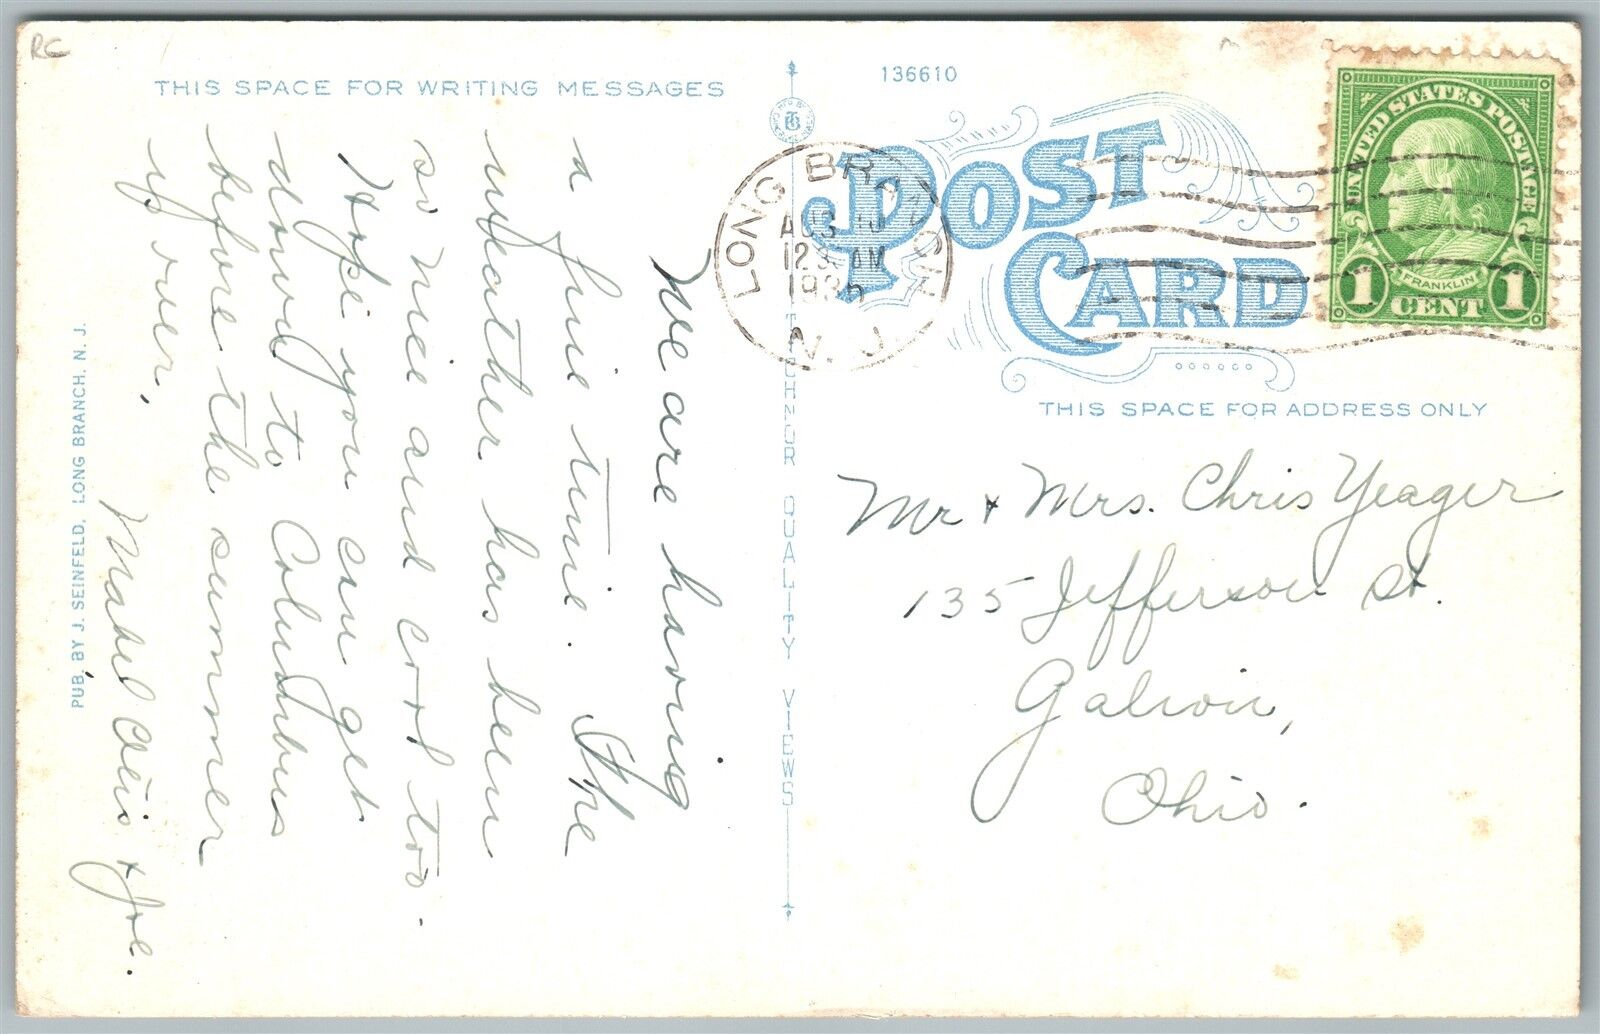 RC
THIS SPACE FOR WRITING MESSAGES
We are having
a fine time. The
weather has been
so nice and cool too.
Hope you can get
down to Columbus
before the summer
is over.
Mabel Otis + Joe.
PUB. BY J. SEINFELD, LONG BRANCH, N. J.
TICHNOR QUALITY VIEWS
136610
POST
CARD
LONG BRANCH
AUG 10
12 30 AM
N. J.
UNITED STATES POSTAGE
FRANKLIN
1 CENT 1
THIS SPACE FOR ADDRESS ONLY
Mr + Mrs. Chris Yeager
135 Jefferson St.
Galion,
Ohio.